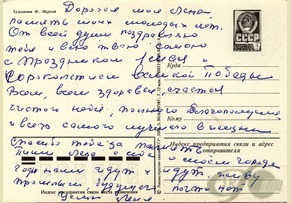 Художник Ф. Марков
Дорогая моя Лена
память моих молодых лет.
От всей души поздравляю
тебя и всю твою семью
с Праздником 1 мая и
Сорокалетием Великой Победы
Всем, всем здоровья, счастья
чистого неба, полного благополучия
и всего самого лучшего в жизни
Спасибо тебе за память
Пиши Лена о себе о моём городе
Годы наши идут и идут, живу
прошлым
Целую
Куда
Кому
Индекс предприятия связи и адрес
отправителя
Индекс предприятия связи места назначения
СССР